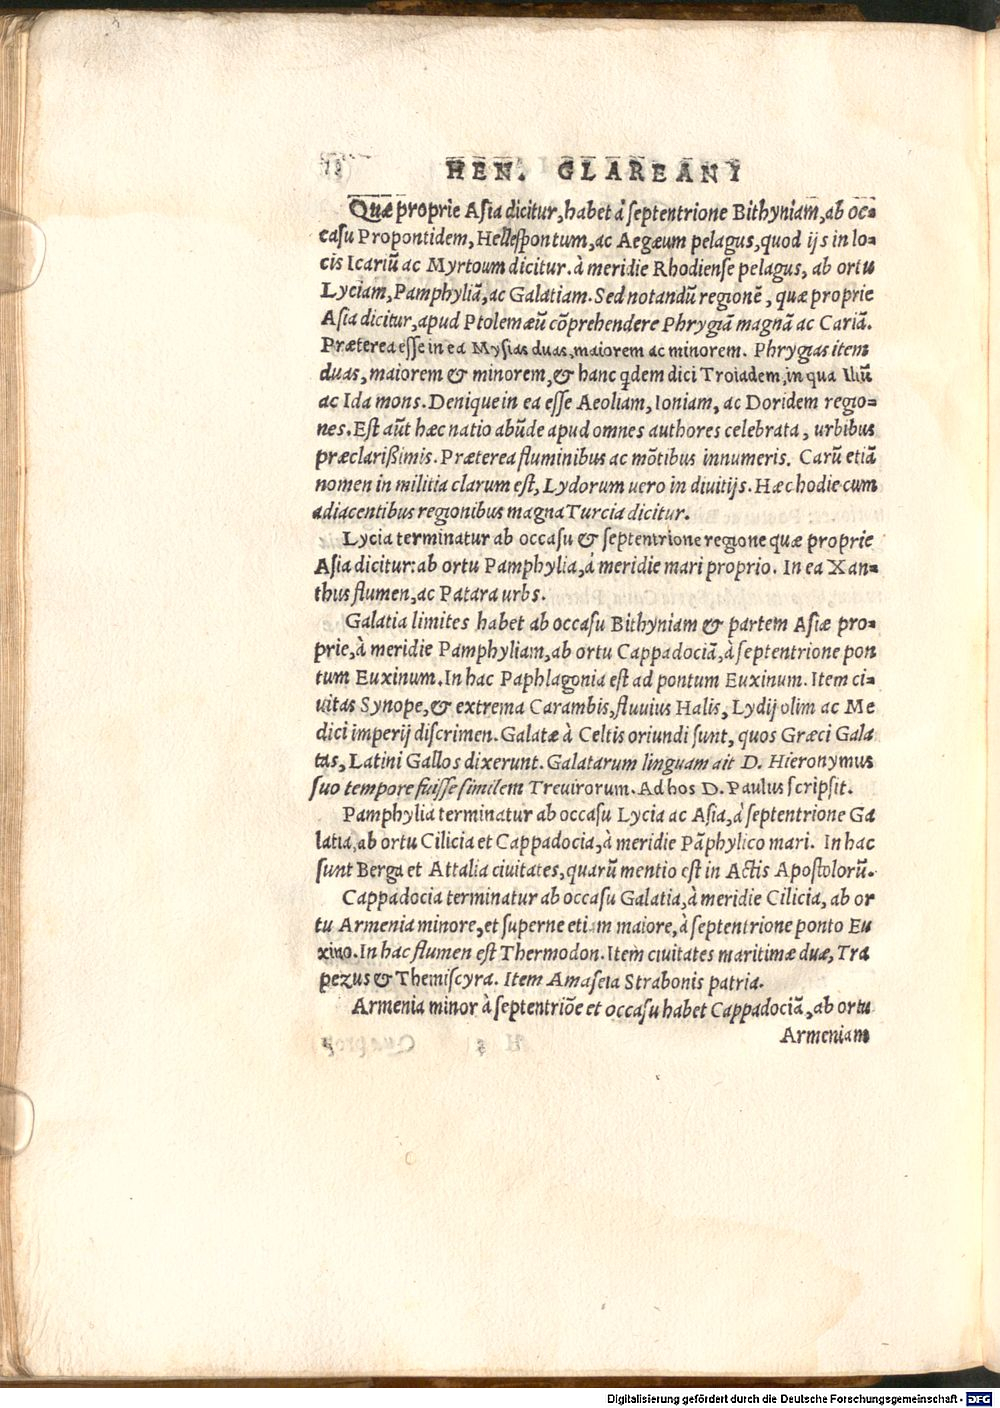 HEN. GLAREANI
Quæ proprie Asia dicitur, habet à septentrione Bithyniam, ab oc=
casu Propontidem, Hellespontum, ac Aegæum pelagus, quod ijs in lo=
cis Icariū ac Myrtoum dicitur. à meridie Rhodiense pelagus, ab ortu
Lyciam, Pamphyliā, ac Galatiam. Sed notandū regionē, quæ proprie
Asia dicitur, apud Ptolemæū cōprehendere Phrygiā magnā ac Cariā.
Præterea esse in ea Mysias duas, maiorem ac minorem. Phrygias item
duas, maiorem & minorem, & hanc qdem dici Troiadem, in qua Iliū
ac Ida mons. Denique in ea esse Aeoliam, Ioniam, ac Doridem regio=
nes. Est aūt hæc natio abūde apud omnes authores celebrata, urbibus
præclarißimis. Præterea fluminibus ac mōtibus innumeris. Carū etiā
nomen in militia clarum est, Lydorum uero in diuitijs. Hæc hodie cum
adiacentibus regionibus magna Turcia dicitur.
Lycia terminatur ab occasu & septentrione regione quæ proprie
Asia dicitur: ab ortu Pamphylia, à meridie mari proprio. In ea Xan=
thus flumen, ac Patara urbs.
Galatia limites habet ab occasu Bithyniam & partem Asiæ pro=
prie, à meridie Pamphyliam, ab ortu Cappadociā, à septentrione pon
tum Euxinum. In hac Paphlagonia est ad pontum Euxinum. Item ci=
uitas Synope, & extrema Carambis, fluuius Halis, Lydij olim ac Me
dici imperij discrimen. Galatæ à Celtis oriundi sunt, quos Græci Gala
tas, Latini Gallos dixerunt. Galatarum linguam ait D. Hieronymus
suo tempore fuisse similem Treuirorum. Ad hos D. Paulus scripsit.
Pamphylia terminatur ab occasu Lycia ac Asia, à septentrione Ga
latia, ab ortu Cilicia et Cappadocia, à meridie Pāphylico mari. In hac
sunt Berga et Attalia ciuitates, quarū mentio est in Actis Apostolorū.
Cappadocia terminatur ab occasu Galatia, à meridie Cilicia, ab or
tu Armenia minore, et superne etiam maiore, à septentrione ponto Eu
xino. In hac flumen est Thermodon. Item ciuitates maritimæ duæ, Tra
pezus & Themiscyra. Item Amaseia Strabonis patria.
Armenia minor à septentriōe et occasu habet Cappadociā, ab ortu
Armeniam
Digitalisierung gefördert durch die Deutsche Forschungsgemeinschaft - DFG